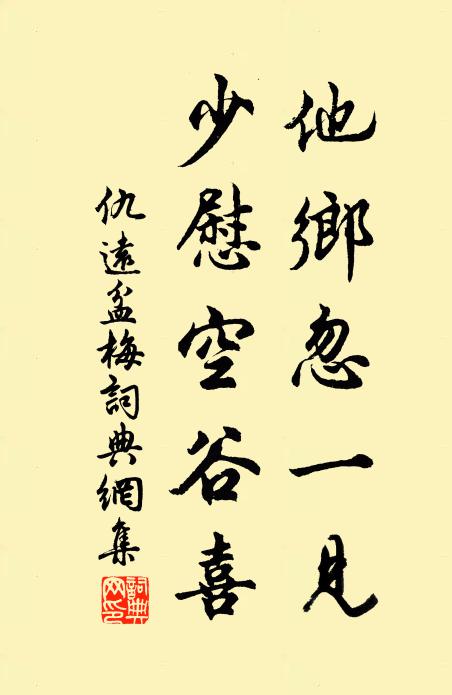 他鄉忽一見
少慰空谷喜
仇遠盆梅詞典網集
詞典网印